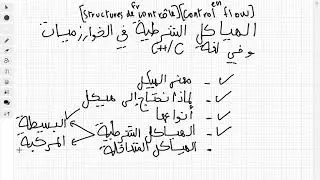 [Structures de contrôle]fr [Control flow]en
الهياكل الشرطية في الخوارزميات
وفي لغة C/C++
- معنى الهيكل ✓
- لماذا نحتاج إلى هيكل ✓
- أنواعها ✓
- الهياكل الشرطية ✓ البسيطة
- الهياكل المتداخلة المركبة